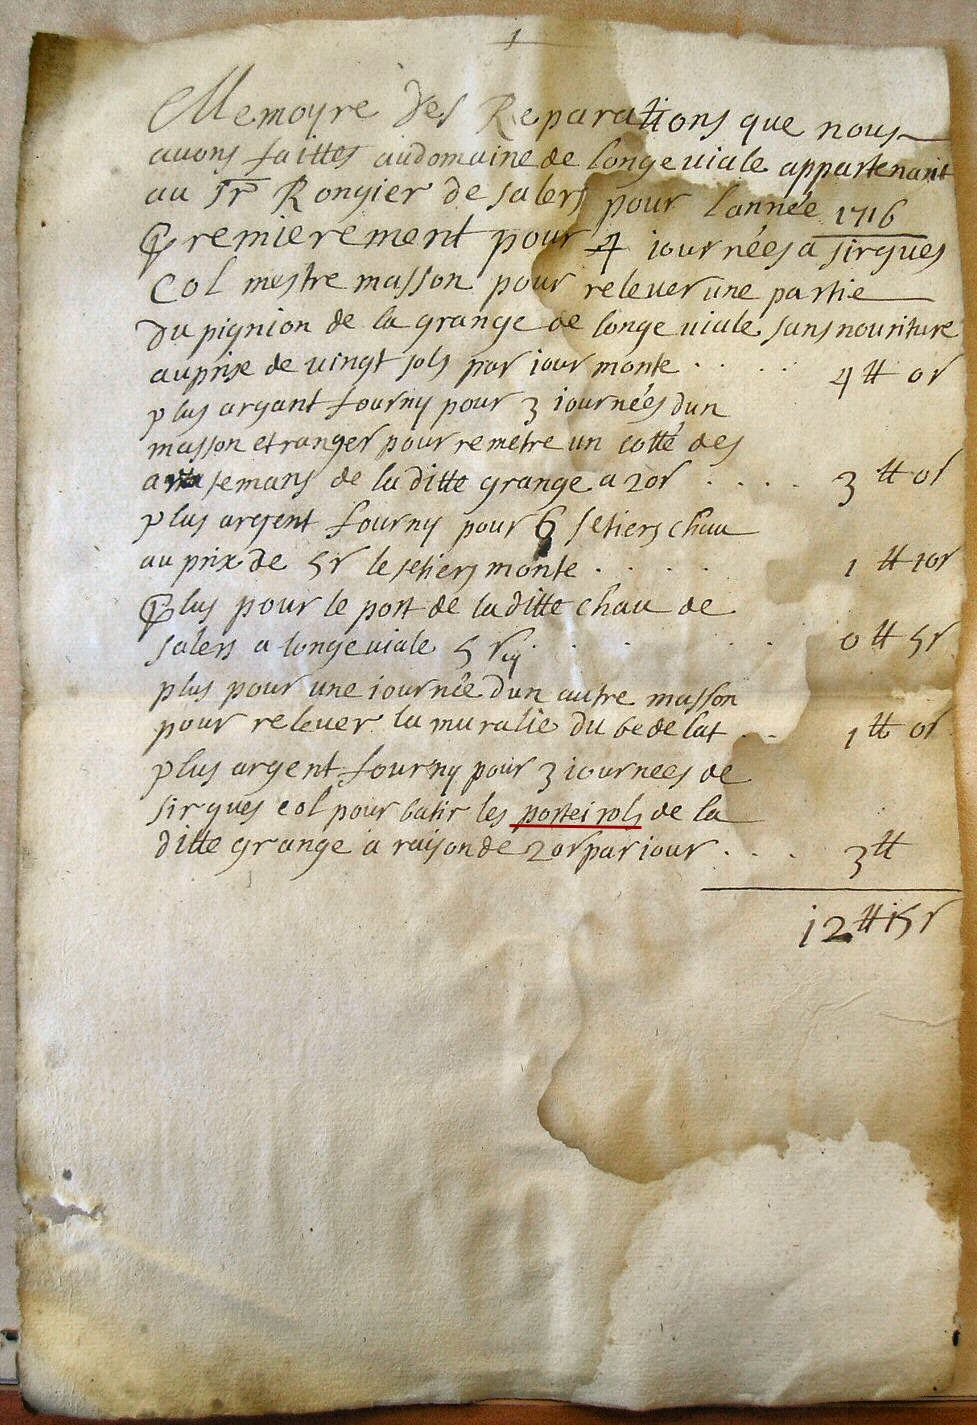 1
Memoyre des Reparations que nous
avons faittes audomaine de longeviale appartenant
au Sr Rongier de salers pour lannée 1716
Premierement pour 4 iournées a sirgues
Col mestre masson pour relever une partie
du pignion de la grange de longe viale sans nouriture
auprise de vingt sols par iour monte . . . . . 4 tt 0 s
plus argant fourny pour 3 iournées dun
masson etranger pour remetre un cotté des
semans de laditte grange a 20s . . . . . 3 tt 0s
plus argent fourny pour 6 setiers chau
au prix de 5s le setiers monte . . . . 1 tt 10s
Plus pour le port de laditte chau de
salers a longeviale 5 s . . . . . 0 tt 5s
plus pour une iournée dun autre masson
pour relever la muralie du bedelat . . 1 tt 0s
plus argent fourny pour 3 iournees de
sirgues col pour batir les porteirols de la
ditte grange a raison de 20s par iour . . . . 3 tt
12 tt 15 s